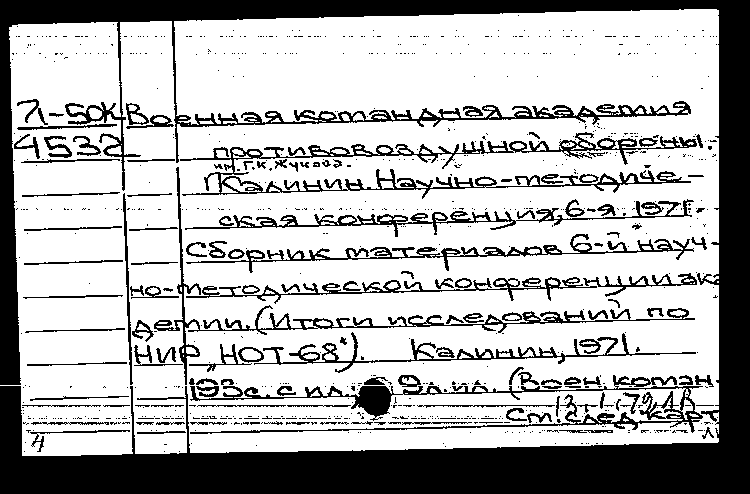 71-50К Военная командная академия
4532 противовоздушной обороны.
им. Г.К. Жукова.
Калинин. Научно-методиче-
ская конференция, 6-я. 1971.
Сборник материалов 6-й науч-
но-методической конференции ака
демии. (Итоги исследований по
НИР „НОТ-68"). Калинин, 1971.
193с. с ил.; 9л. ил. (Воен. коман-
См. след. карт
4